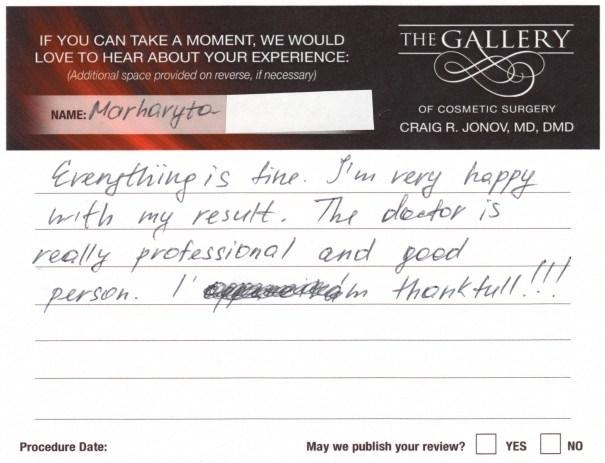 IF YOU CAN TAKE A MOMENT, WE WOULD
LOVE TO HEAR ABOUT YOUR EXPERIENCE:
(Additional space provided on reverse, if necessary)
NAME: Marharyta
THE GALLERY
OF COSMETIC SURGERY
CRAIG R. JONOV, MD, DMD
Everything is fine. I'm very happy
with my result. The doctor is
really professional and good
person. I'm thankfull!!!
Procedure Date:
May we publish your review? YES NO